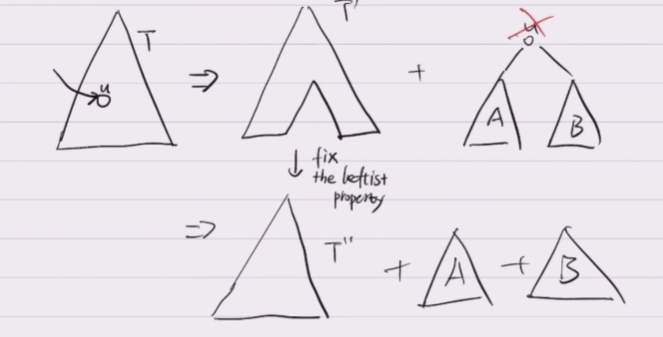 T
u
⇒
T'
+
u
A
B
↓ fix
the leftist
property
⇒
T"
+
A
+
B